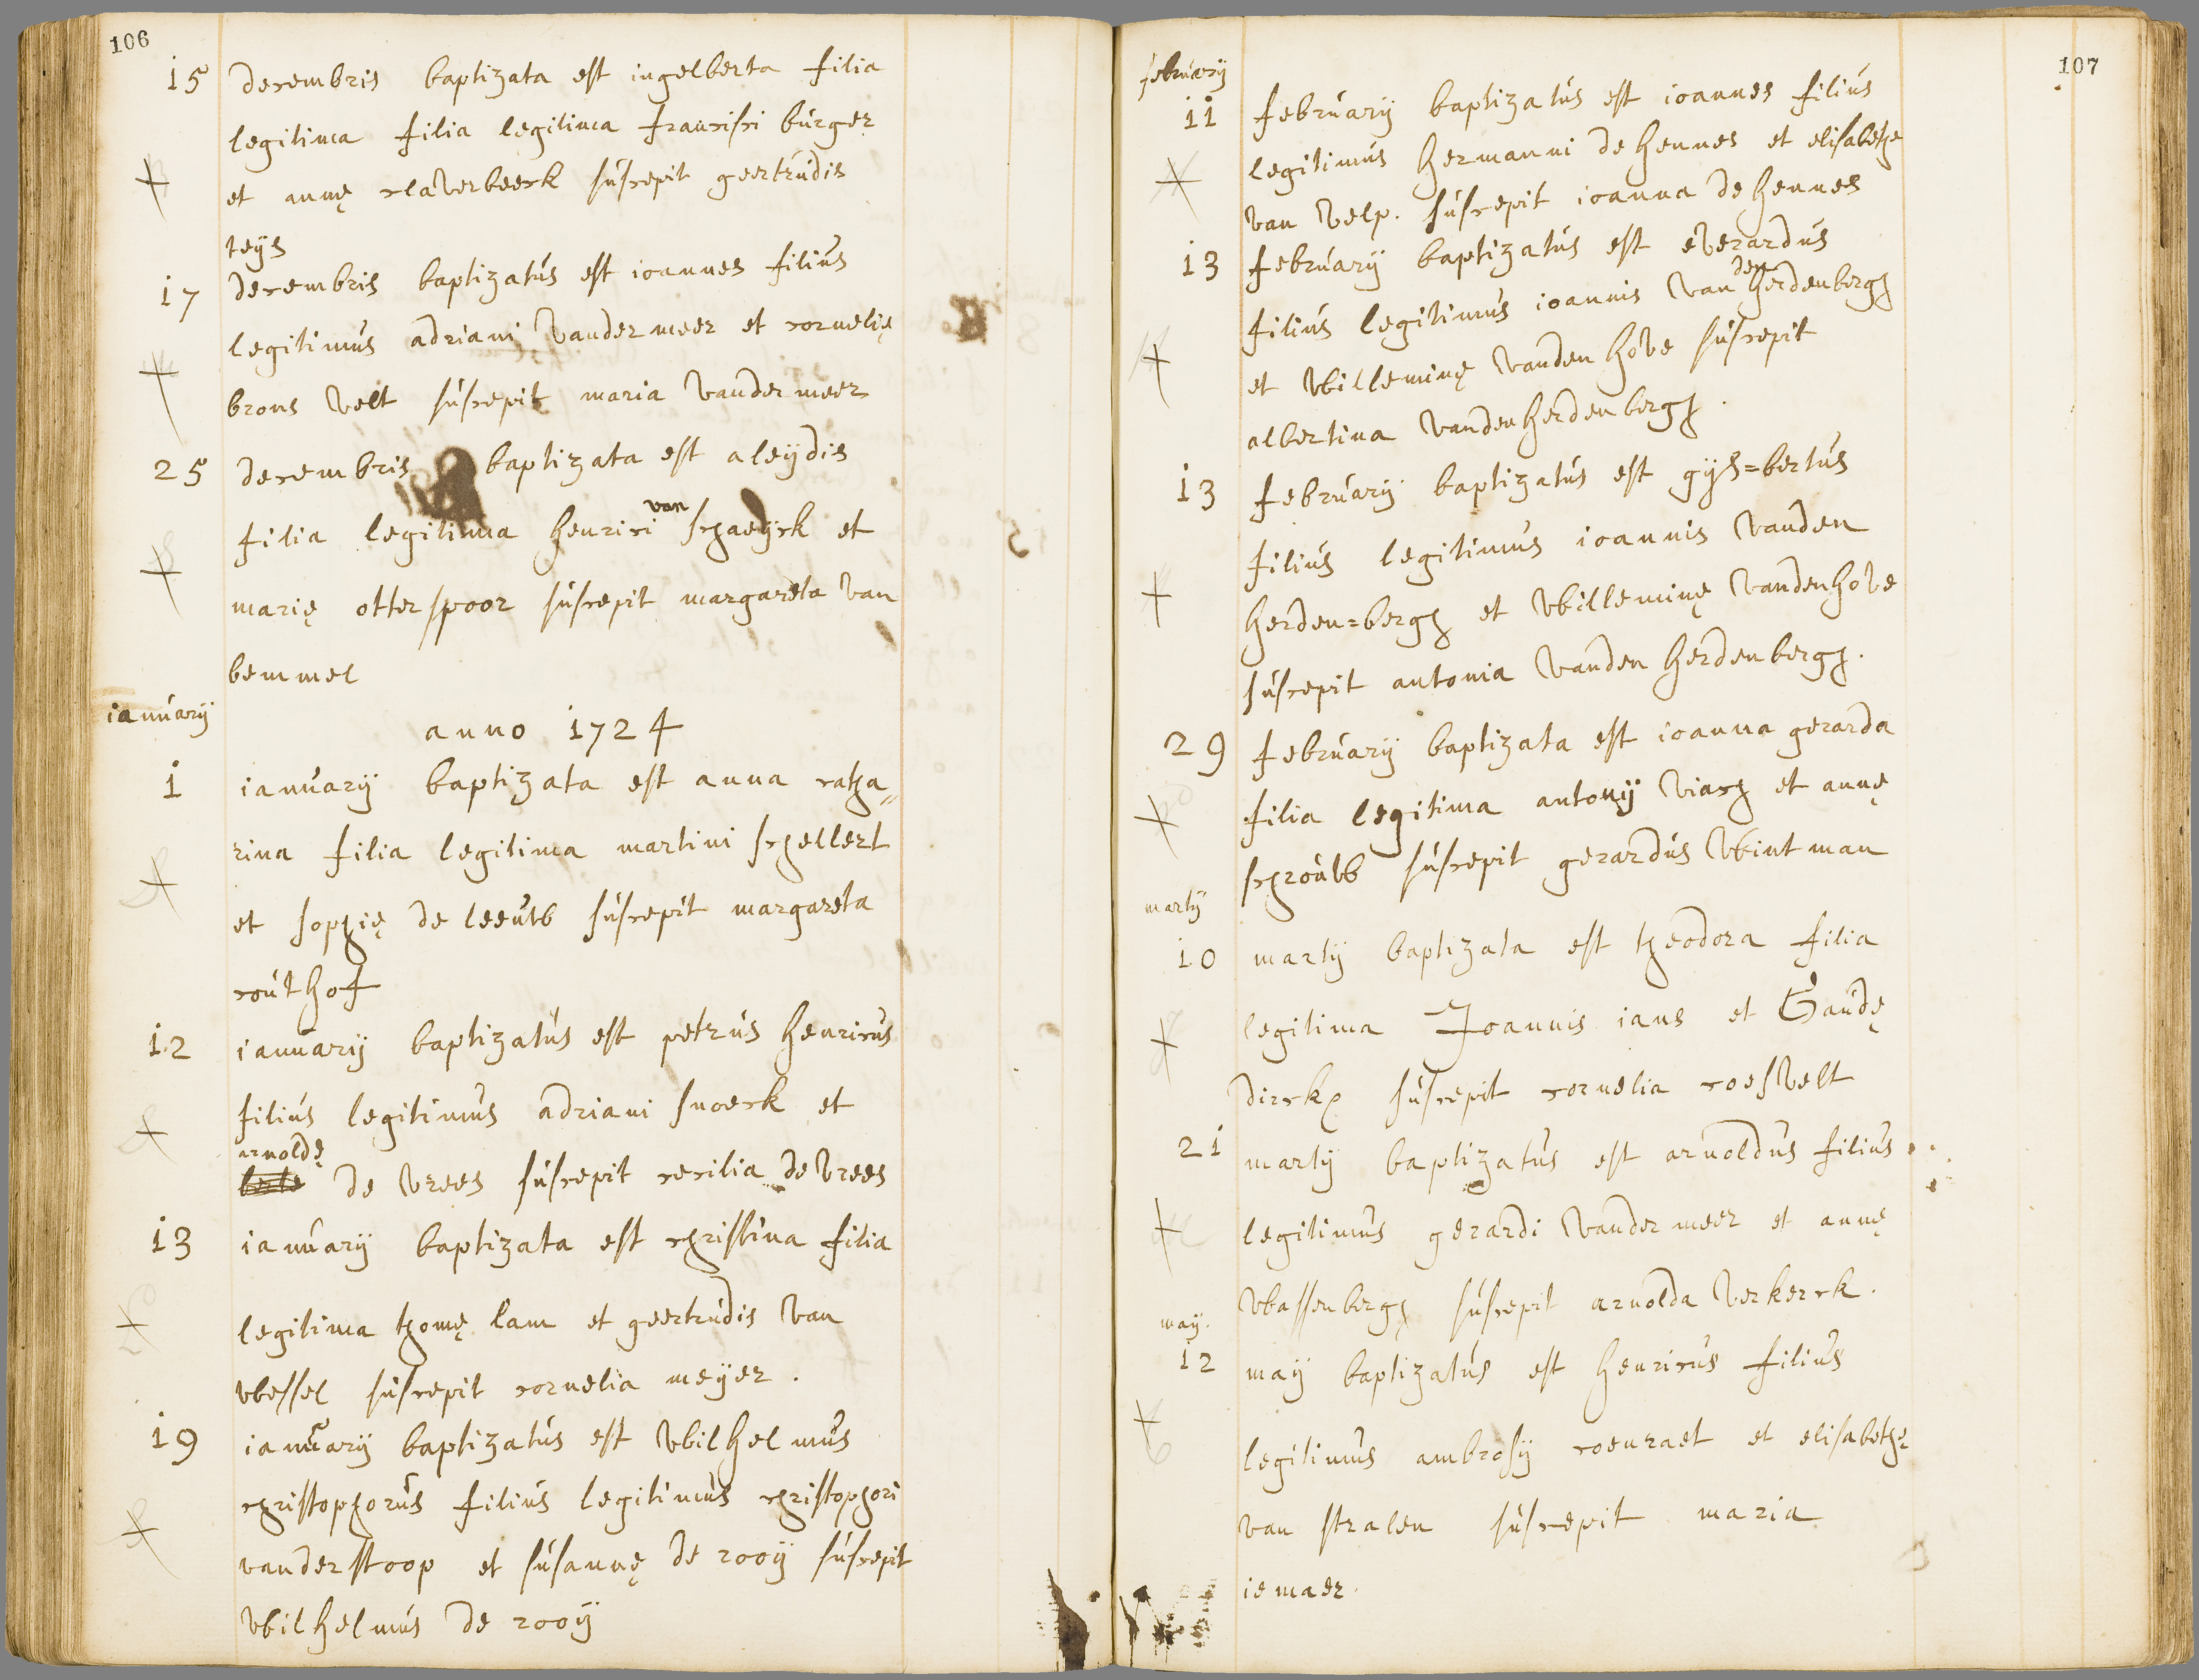 106
15 decembris baptizata est ingelberta filia
legitima filia legitima francisci burger
et annę claverbeeck suscepit geertrudis
teijs
17 decembris baptizatus est ioannes filius
legitimus adriani vander meer et cornelię
brons velt suscepit maria vander meer
25 decembris baptizata est aleijdis
filia legitima henrici van schaeijck et
marię otterspoor suscepit margareta van
bemmel
ianuarij
anno 1724
1 ianuarij baptizata est anna catha„
rina filia legitima martini schellert
et sophię de leeuw suscepit margareta
couthof
12 ianuarij baptizatus est petrus henricus
filius legitimus adriani snoeck et
arnoldę
de vrees suscepit cecilia de vrees
13 ianuarij baptizata est christina filia
legitima thomę lam et geertrudis van
wessel suscepit cornelia meijer.
19 ianuarij baptizatus est wilhelmus
christophorus filius legitimus christophori
vanderstoop et susannę de rooij suscepit
wilhelmus de rooij
107
februarij
11 februarij baptizatus est ioannes filius
legitimus hermanni de hennes et elisabethe
van velp. suscepit ioanna de hennes
13 februarij baptizatus est everardus
filius legitimus ioannis van den herdenbergh
et willeminę vanden hove suscepit
albertina vanden herdenbergh.
13 februarij baptizatus est gijs=bertus
filius legitimus ioannis vanden
herden=bergh et willeminę vandenhove
suscepit antonia vanden herdenbergh.
29 februarij baptizata est ioanna gerarda
filia legitima antonij viach et annę
schrouw suscepit gerardus wintman
martij
10 martij baptizata est theodora filia
legitima Joannis ians et Gaudę
dirckx suscepit cornelia roesvelt
21 martij baptizatus est arnoldus filius
legitimus gerardi vander meer et annę
wassenbergh suscepit arnolda verkerck.
maij.
12 maij baptizatus est henricus filius
legitimus ambrosij coenraet et elisabethę
van stralen suscepit maria
iemaer.